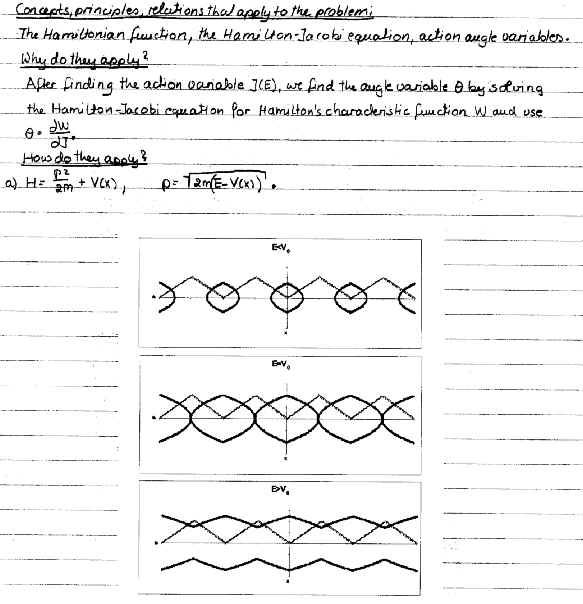 Concepts, principles, relations that apply to the problem:
The Hamiltonian function, the Hamilton-Jacobi equation, action angle variables.
Why do they apply?
After finding the action variable J(E), we find the angle variable θ by solving
the Hamilton-Jacobi equation for Hamilton's characteristic function W and use
θ = ∂W/∂J.
How do they apply?
a) H = p²/2m + V(x), p = √2m(E-V(x)) .
E<V₀
E=V₀
E>V₀